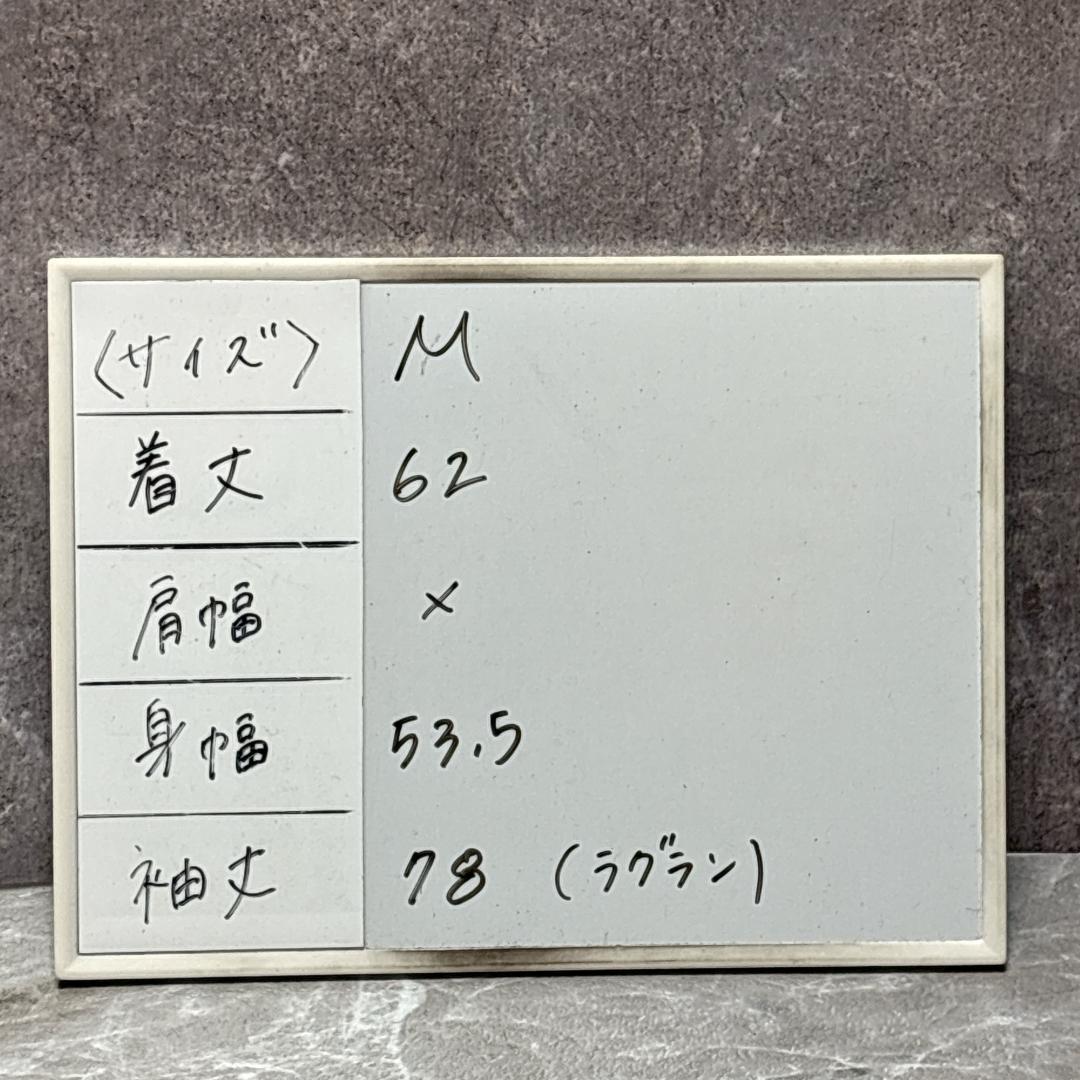 〈サイズ〉 M
着丈 62
肩幅 ×
身幅 53.5
袖丈 78 (ラグラン)